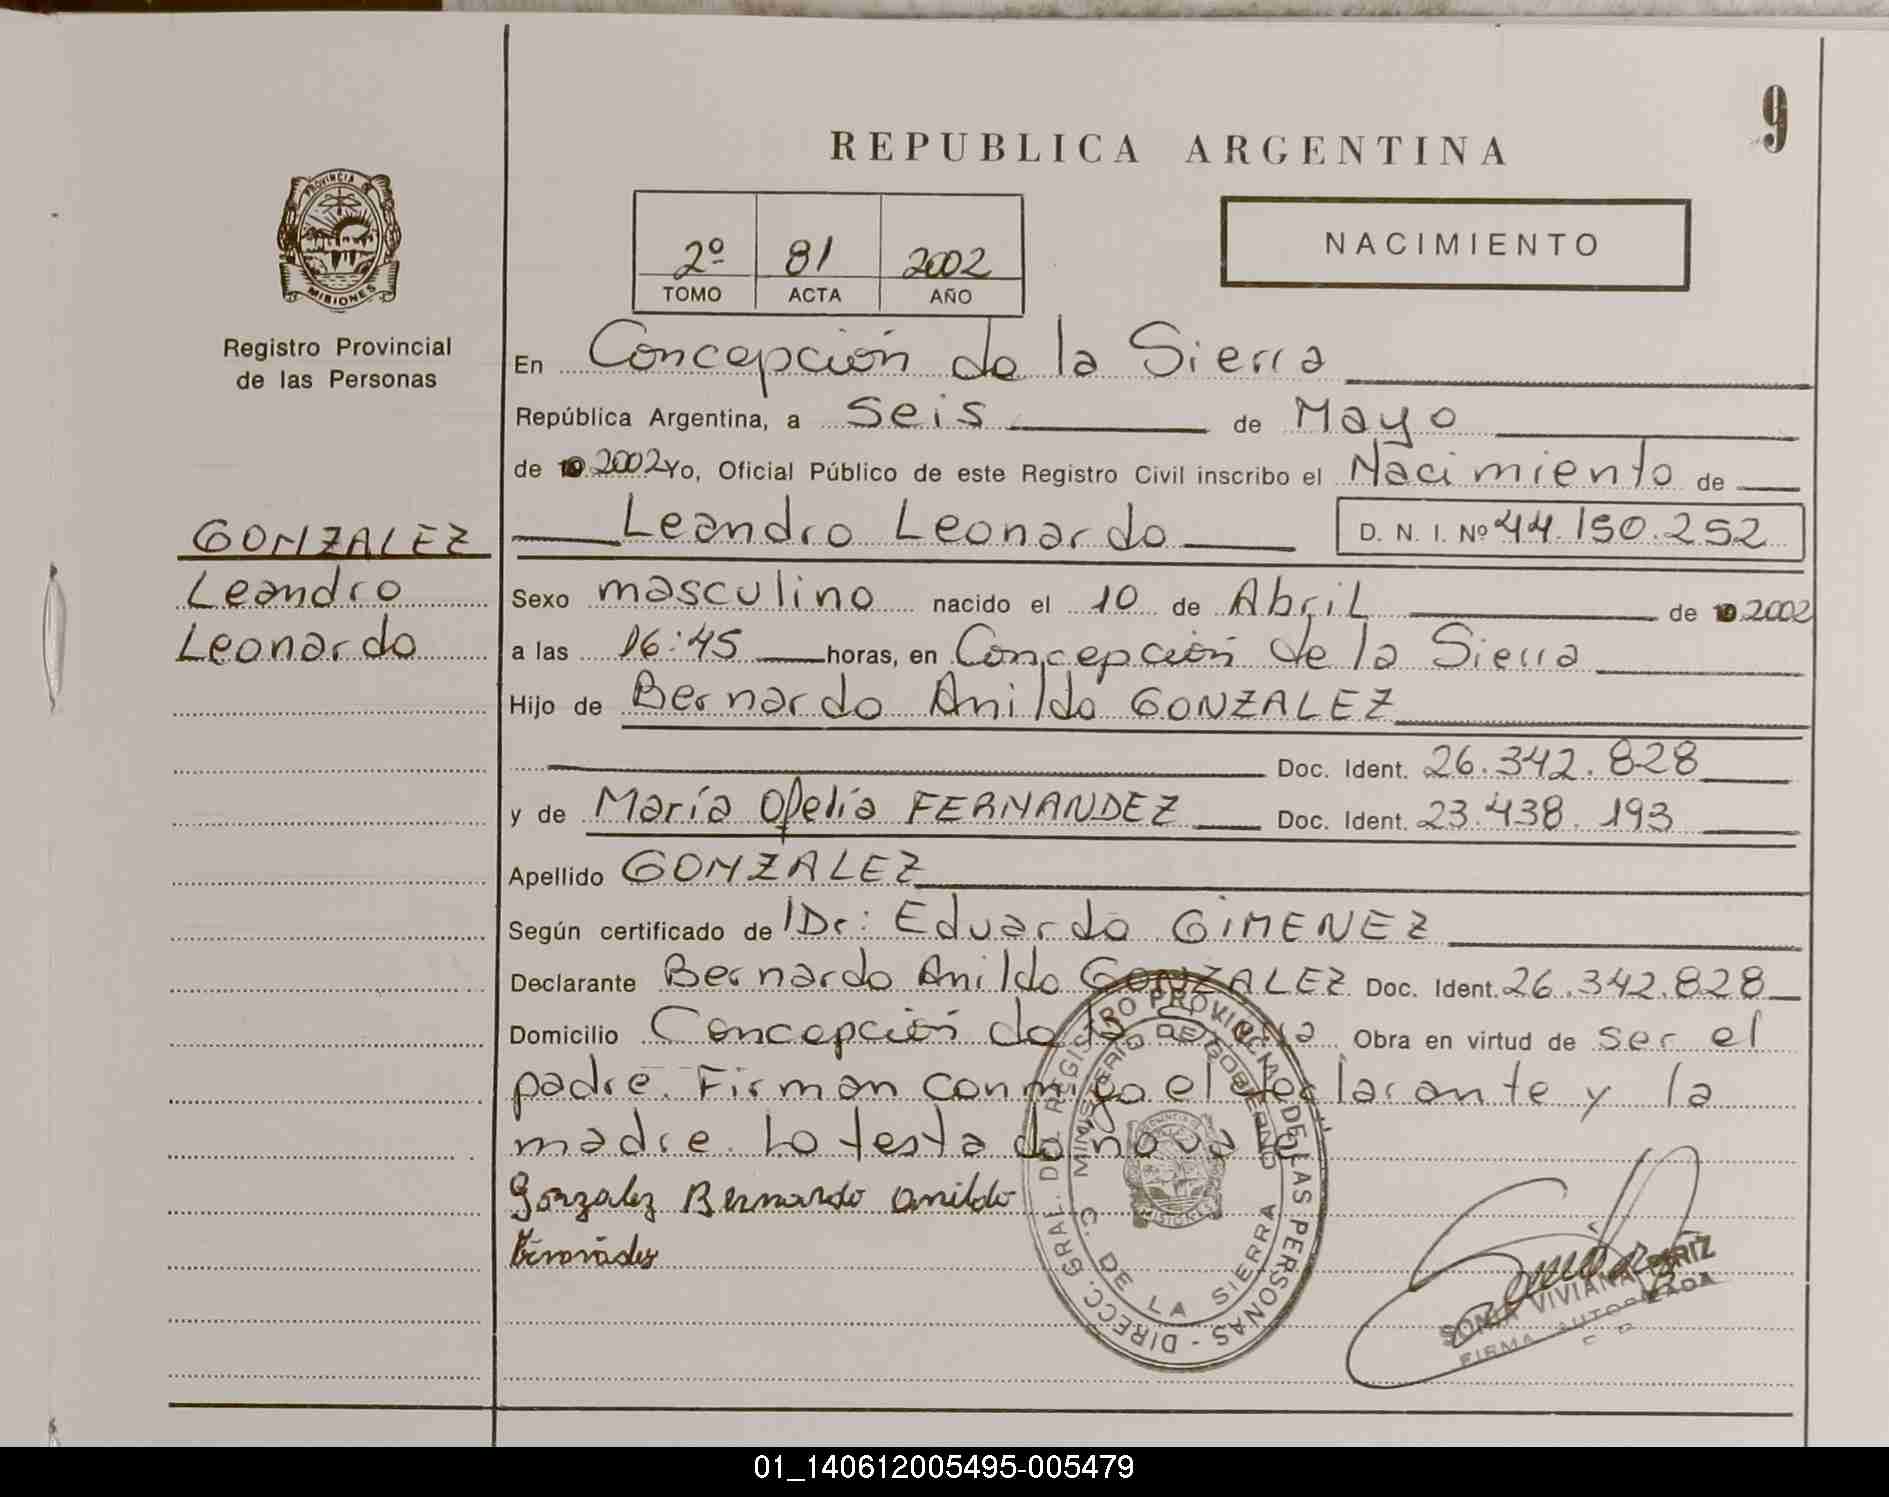 9
REPUBLICA ARGENTINA
PROVINCIA DE
MISIONES
Registro Provincial
de las Personas
2º 81 2002
TOMO ACTA AÑO
NACIMIENTO
En Concepción de la Sierra
República Argentina, a Seis de Mayo
de 19 2002 Yo, Oficial Público de este Registro Civil inscribo el Nacimiento de
Leandro Leonardo D. N. I. Nº 44.150.252
GONZALEZ
Leandro
Leonardo
Sexo masculino nacido el 10 de Abril de 19 2002
a las 16:45 horas, en Concepción de la Sierra
Hijo de Bernardo Anildo GONZALEZ
Doc. Ident. 26.342.828
y de María Ofelia FERNANDEZ Doc. Ident. 23.438.193
Apellido GONZALEZ
Según certificado de Dr: Eduardo GIMENEZ
Declarante Bernardo Anildo GONZALEZ Doc. Ident. 26.342.828
Domicilio Concepción de la Sierra Obra en virtud de ser el
padre. Firman conmigo el declarante y la
madre. Lo testado no vale
Gonzalez Bernardo anildo
DIRECC. GRAL. DEL REGISTRO PROVINCIAL DE LAS PERSONAS -
MINISTERIO DE GOBIERNO
C. DE LA SIERRA
MISIONES
SONIA VIVIANA
FIRMA AUTORIZADA
01_140612005495-005479